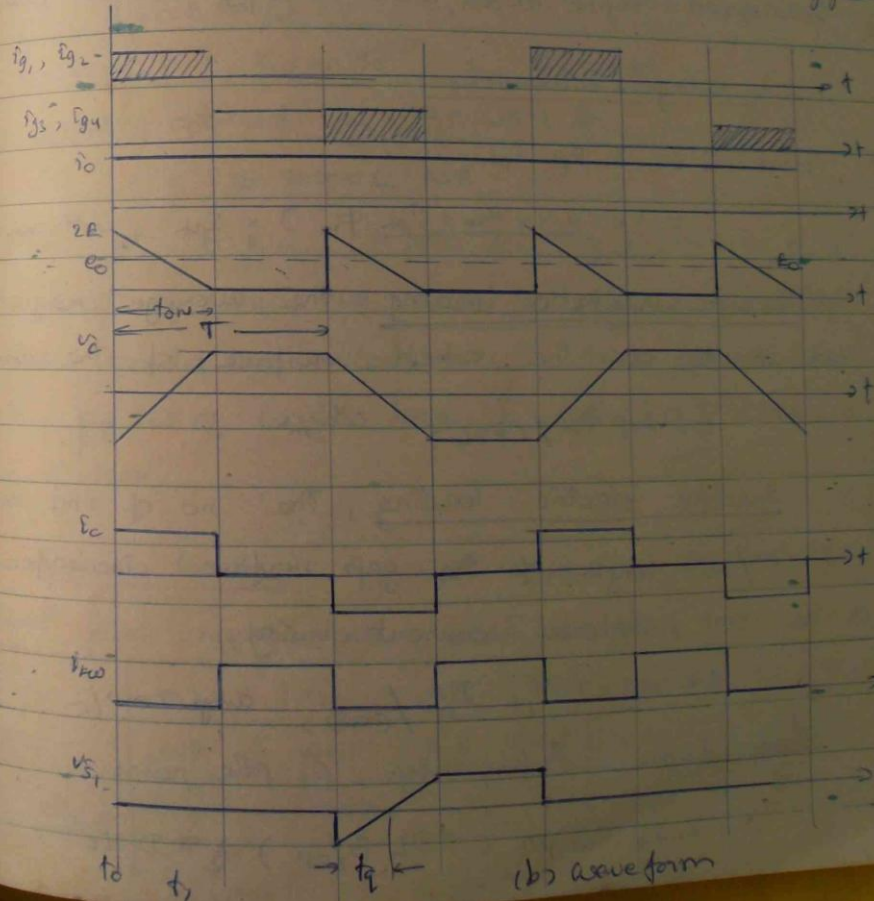 ig1, ig2
t
ig3, ig4
t
i0
t
2E
e0
E0
t
tON
T
vc
t
ic
t
iFW
vS1
t0
t1
tq
(b) waveform